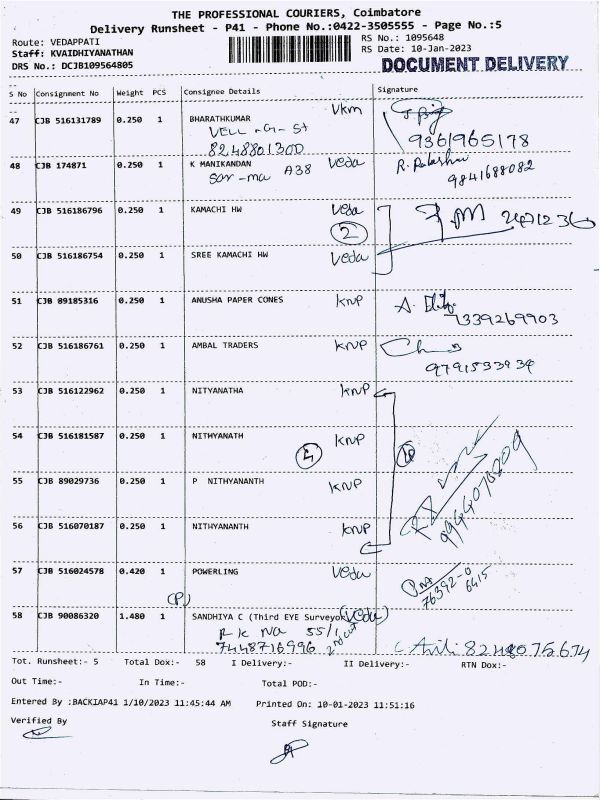 THE PROFESSIONAL COURIERS, Coimbatore
Delivery Runsheet - P41 - Phone No.:0422-3505555 - Page No.:5
Route: VEDAPPATI
RS No.: 1095648
Staff: KVAIDHIYANATHAN
RS Date: 10-Jan-2023
DRS No.: DCJB109564805
DOCUMENT DELIVERY
S No Consignment No Weight PCS Consignee Details Signature
47 CJB 516131789 0.250 1 BHARATHKUMAR Vkm
9361965178
48 CJB 174871 0.250 1 K MANIKANDAN Veda
A38
9841688082
49 CJB 516186796 0.250 1 KAMACHI HW Veda
2
50 CJB 516186754 0.250 1 SREE KAMACHI HW Veda
51 CJB 89185316 0.250 1 ANUSHA PAPER CONES KNP
7339269903
52 CJB 516186761 0.250 1 AMBAL TRADERS KNP
9791533934
53 CJB 516122962 0.250 1 NITYANATHA KNP
54 CJB 516181587 0.250 1 NITHYANATH KNP
4
55 CJB 89029736 0.250 1 P NITHYANANTH KNP
56 CJB 516070187 0.250 1 NITHYANANTH KNP
57 CJB 516024578 0.420 1 POWERLING Veda
76392-0
6415
(P)
58 CJB 90086320 1.480 1 SANDHIYA C (Third EYE Surveyor Veda
55/1
7448716996
Tot. Runsheet:- 5 Total Dox:- 58 I Delivery:- II Delivery:- RTN Dox:-
Out Time:- In Time:- Total POD:-
Entered By :BACKIAP41 1/10/2023 11:45:44 AM Printed On: 10-01-2023 11:51:16
Verified By
Staff Signature